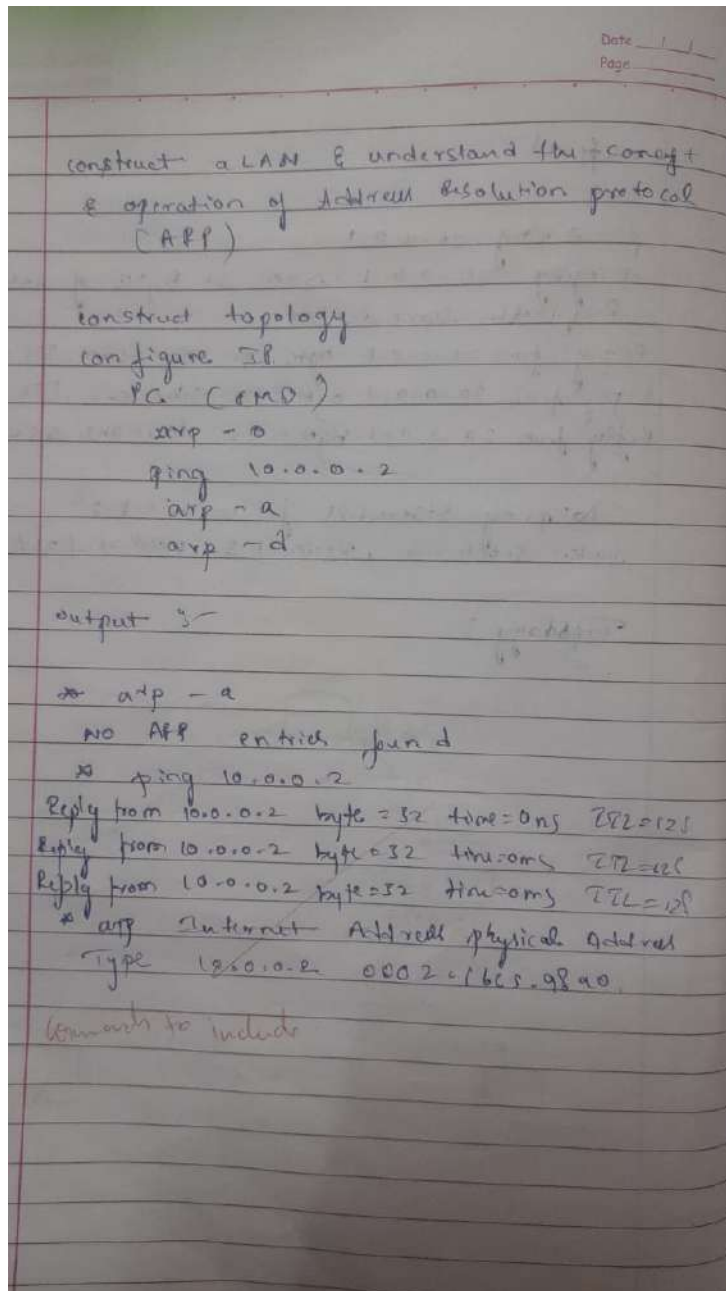 Date
Page
construct a LAN & understand the concept
& operation of Address Resolution protocal
(ARP)
construct topology
configure IP
PC (CMD)
arp - a
ping 10.0.0.2
arp - a
arp - d
output :-
* arp - a
NO ARP entries found
* ping 10.0.0.2
Reply from 10.0.0.2 byte = 32 time=0ms TTL=128
Reply from 10.0.0.2 byte = 32 time=0ms TTL=128
Reply from 10.0.0.2 byte = 32 time=0ms TTL=128
* arp Internet Address physical Address
Type 10.0.0.2
to include